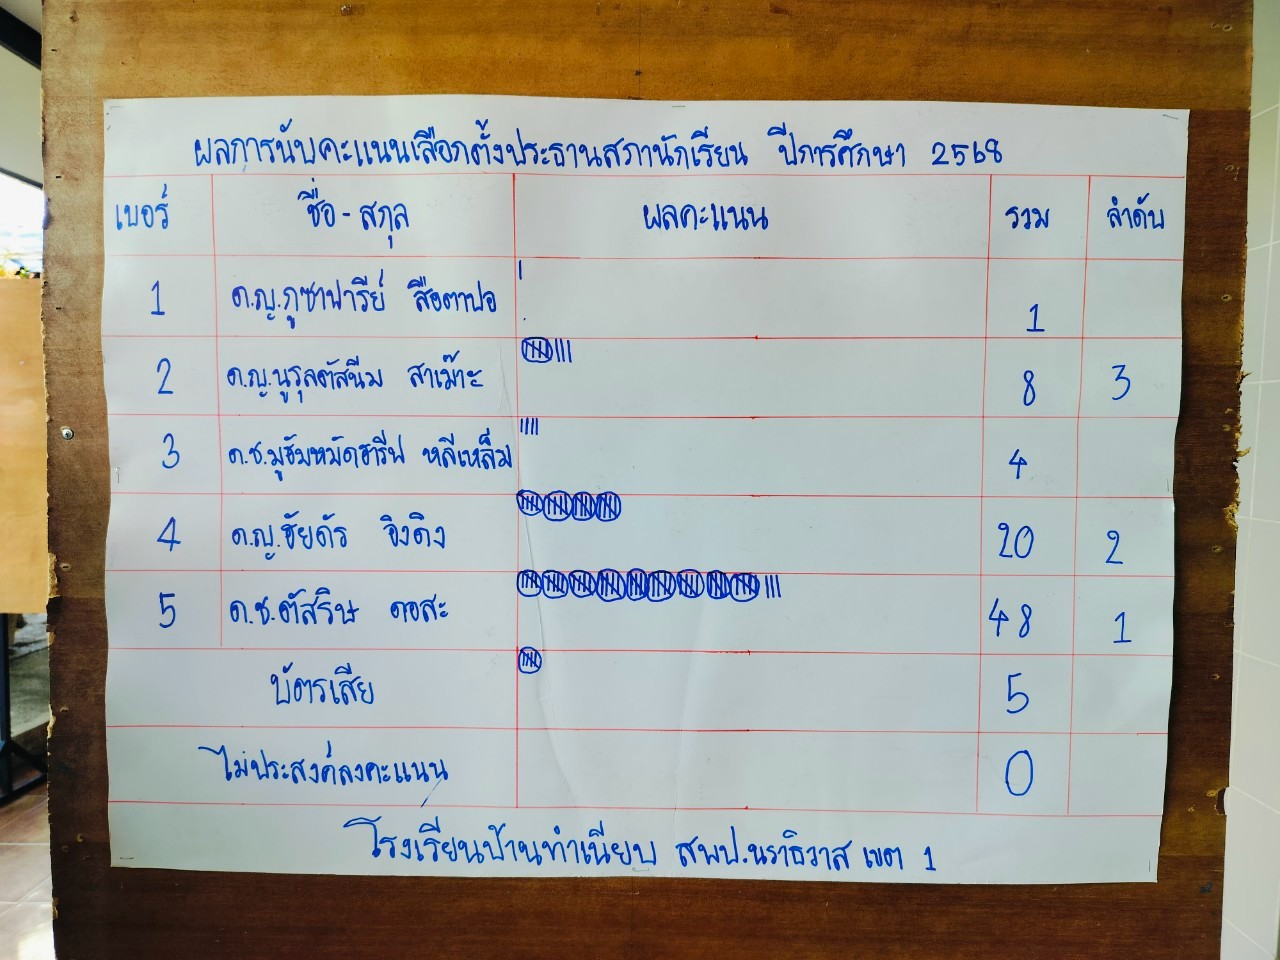 ผลการนับคะแนนเลือกตั้งประธานสภานักเรียน ปีการศึกษา 2568
เบอร์ ชื่อ - สกุล ผลคะแนน รวม ลำดับ
1 ด.ญ.ภูซาฟารีย์ สือตาปอ 1
2 ด.ญ.นูรุลตัสนีม สาเม๊าะ 8 3
3 ด.ช.มูฮัมหมัดฮารีฟ หลีเหล็ม 4
4 ด.ญ.ฮัยดัร อิงดิง 20 2
5 ด.ช.ตัสริษ ดอสะ 48 1
บัตรเสีย 5
ไม่ประสงค์ลงคะแนน 0
โรงเรียนบ้านทำเนียบ สพป.นราธิวาส เขต 1